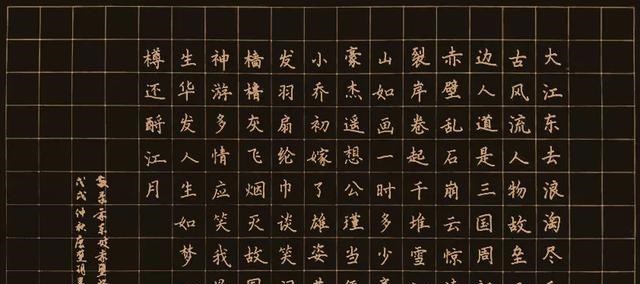 大江东去浪淘尽
古风流人物故垒
边人道是三国周
赤壁乱石崩云惊
裂岸卷起千堆雪
山如画一时多少
豪杰遥想公瑾当
小乔初嫁了雄姿
发羽扇纶巾谈笑
樯橹灰飞烟灭故
神游多情应笑我
生华发人生如梦
樽还酹江月
录苏东坡赤壁
戊戌仲秋